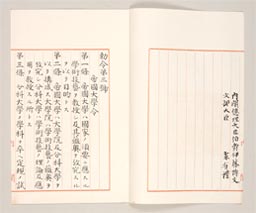 内閣總理大臣伯爵伊藤博文
文部大臣 森有禮
勅令第三號
帝國大學令
第一條 帝國大學ハ國家ノ須要ニ應スル
學術技藝ヲ教授シ及其蘊奥ヲ攷究スル
ヲ以テ目的トス
第二條 帝國大學ハ大學院及分科大學ヲ
以テ構成ス大學院ハ學術技藝ノ蘊奥ヲ
攷究シ分科大學ハ學術技藝ノ理論及應
用ヲ教授スル所トス
第三條 分科大學ノ學科ヲ卒ヘ定規ノ試